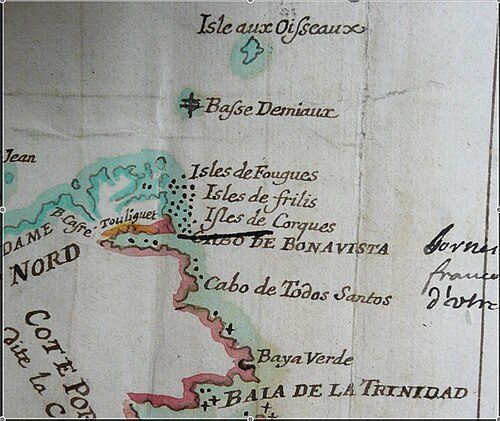 Isle aux Oisseaux
Basse Demiaux
Jean
Isles de Fougues
Isles de frilis
Isles de Corques
CABO DE BONAVISTA
DAME
Touliguet
NORD
Cabo de Todos Santos
borne
france
COTE POR
dite la C
Baya Verde
BAIA DE LA TRINIDAD